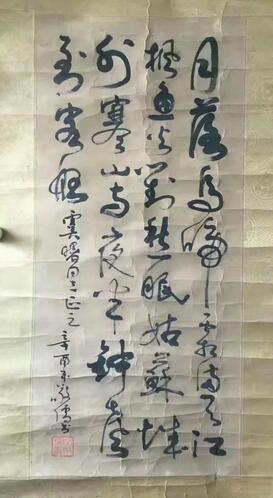 月落烏啼霜滿天江
楓漁火對愁眠姑蘇城
外寒山寺夜半鐘聲
到客船
同志正之 辛酉